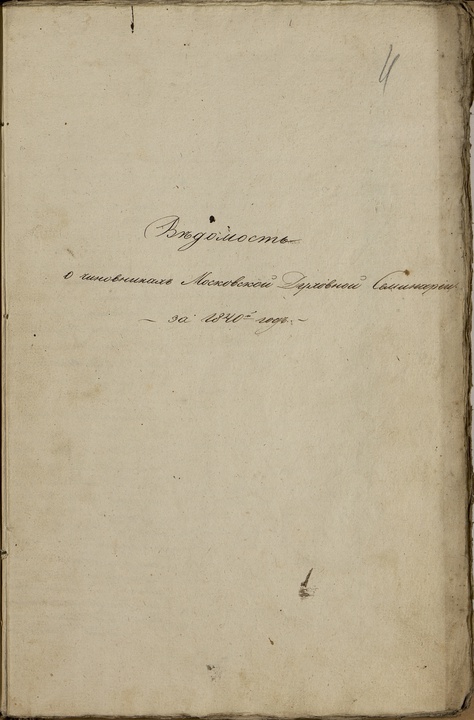 4
Вѣдомость
о чиновникахъ Московской Духовной Семинаріи
– за 1840й годъ. –